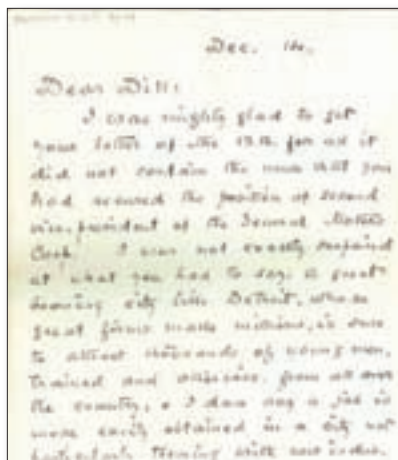 Dec. 14.
Dear Bill:
I was mighty glad to get
your letter of the 12th for as it
did not contain the news that you
had secured the position of second
vice-president of the General Motors
Corp. I was not exactly surprised
at what you had to say. A great
booming city like Detroit, whose
great firms make millions, is sure
to attract thousands of young men,
trained and otherwise, from all over
the country, + I dare say a job is
more easily obtained in a city not
particularly teeming with